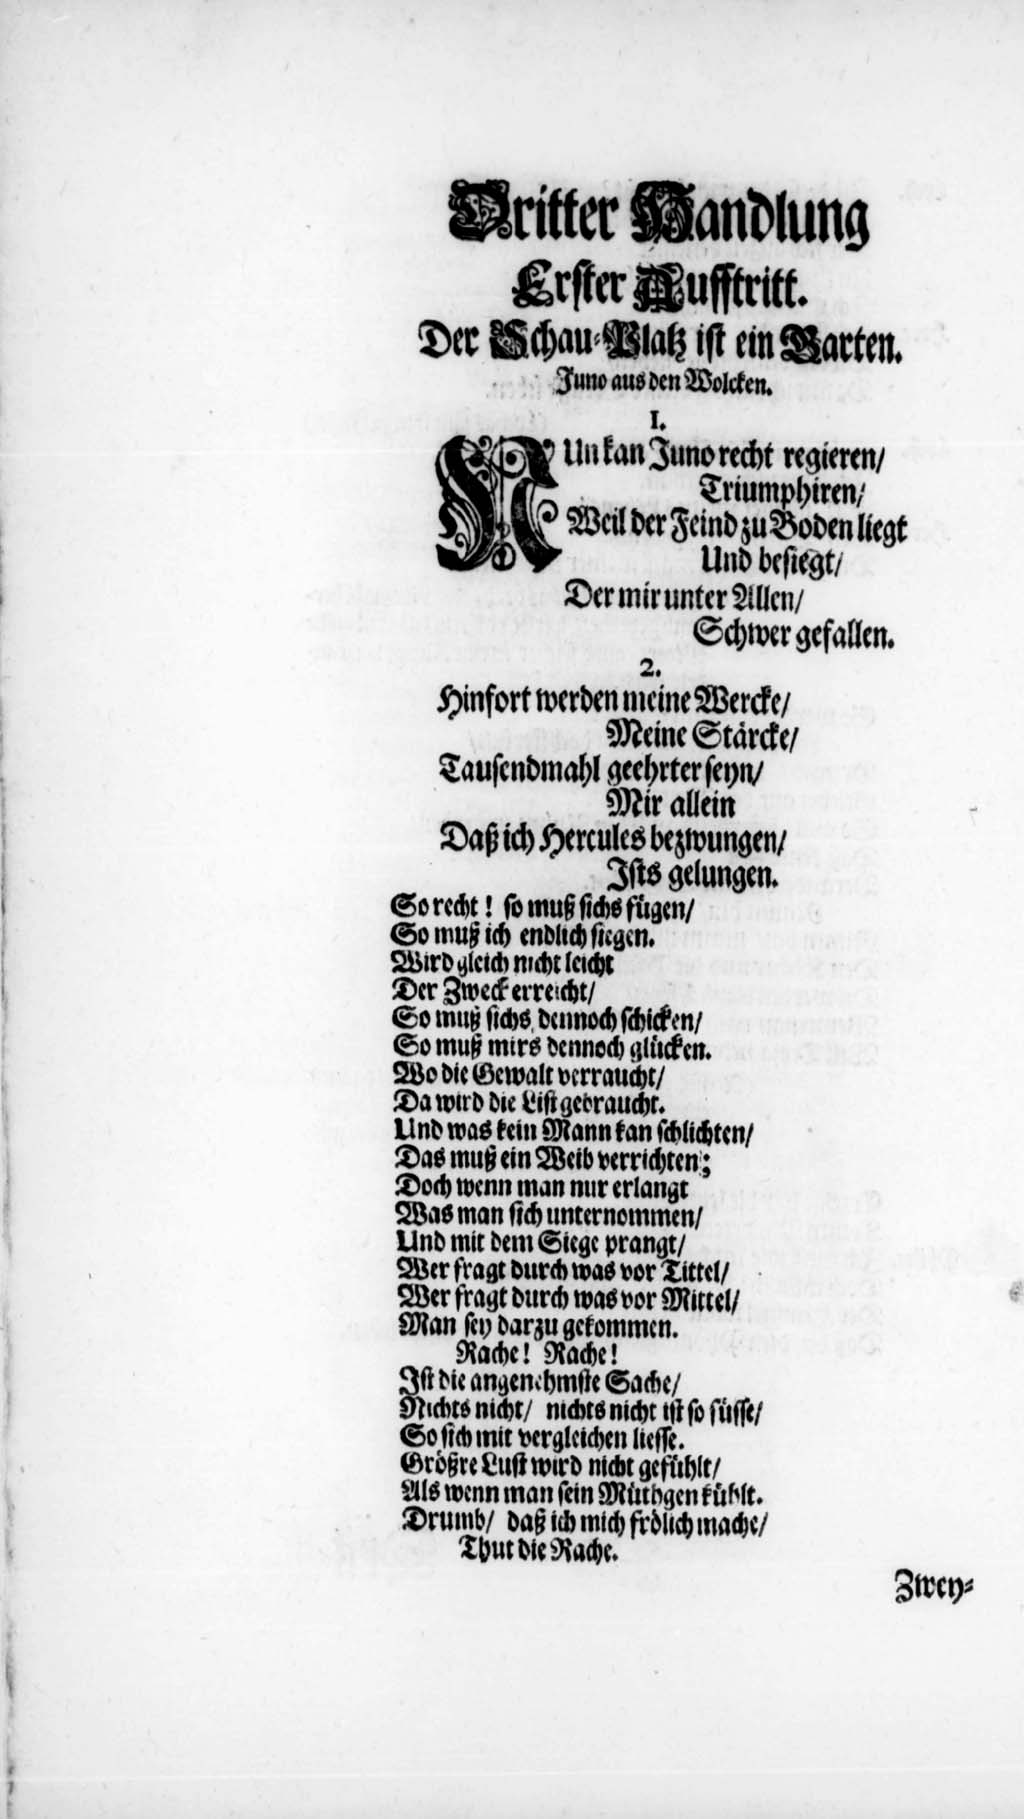 Dritter Handlung
Erster Aufftritt.
Der Schau-Platz ist ein Garten.
Juno aus den Wolcken.
1.
NUn kan Juno recht regieren/
Triumphiren/
Weil der Feind zu Boden liegt
Und besiegt/
Der mir unter Allen/
Schwer gefallen.
2.
Hinfort werden meine Wercke/
Meine Stärcke/
Tausendmahl geehrter seyn/
Mir allein
Daß ich Hercules bezwungen/
Ists gelungen.
So recht! so muß sichs fügen/
So muß ich endlich siegen.
Wird gleich nicht leicht
Der Zweck erreicht/
So muß sichs dennoch schicken/
So muß mirs dennoch glücken.
Wo die Gewalt verraucht/
Da wird die List gebraucht.
Und was kein Mann kan schlichten/
Das muß ein Weib verrichten;
Doch wenn man nur erlangt
Was man sich unternommen/
Und mit dem Siege prangt/
Wer fragt durch was vor Tittel/
Wer fragt durch was vor Mittel/
Man sey darzu gekommen.
Rache! Rache!
Ist die angenehmste Sache/
Nichts nicht/ nichts nicht ist so süsse/
So sich mit vergleichen liesse.
Größre Lust wird nicht gefühlt/
Als wenn man sein Müthgen kühlt.
Drumb/ daß ich mich frölich mache/
Thut die Rache.
Zwey-